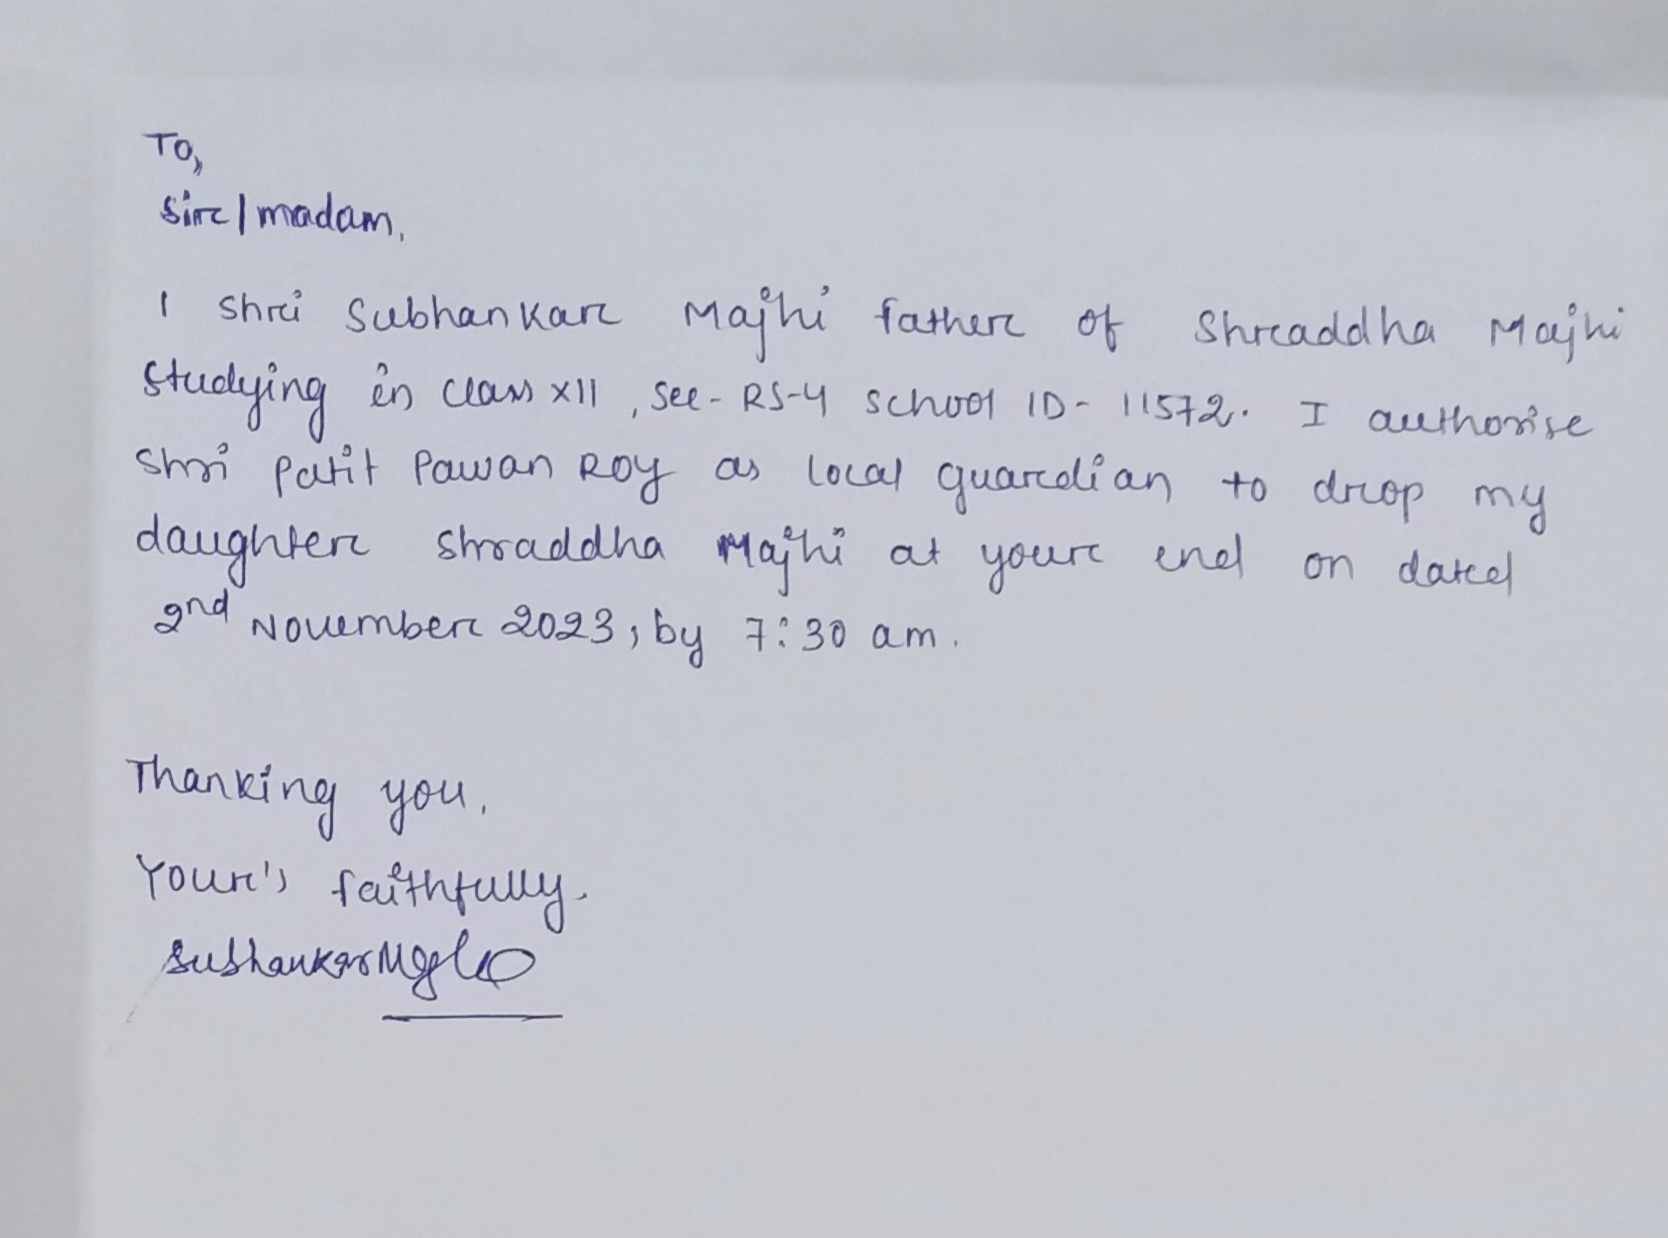 To,
Sir/madam,
I Shri Subhankar Majhi father of Shraddha Majhi
Studying in Class XII, Sec - RS-4 School ID - 11572. I authorise
Shri Patit Pawan Roy as local guardian to drop my
daughter Shraddha Majhi at your end on dated
2nd November 2023, by 7:30 am.
Thanking you,
Your's faithfully.
Subhankar Majhi